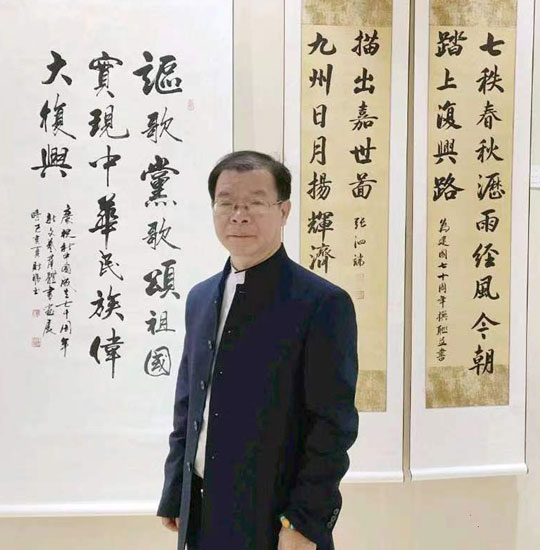 七秩春秋瀝雨经風今朝
踏上復興路
建國七十周年撰
九州日月揚輝濟
描出嘉世啚
張泗
謳歌黨歌頌祖國
實現中華民族偉
大復興
慶祝新中國成立七十周年
文藝羣體書畫展
時己亥夏